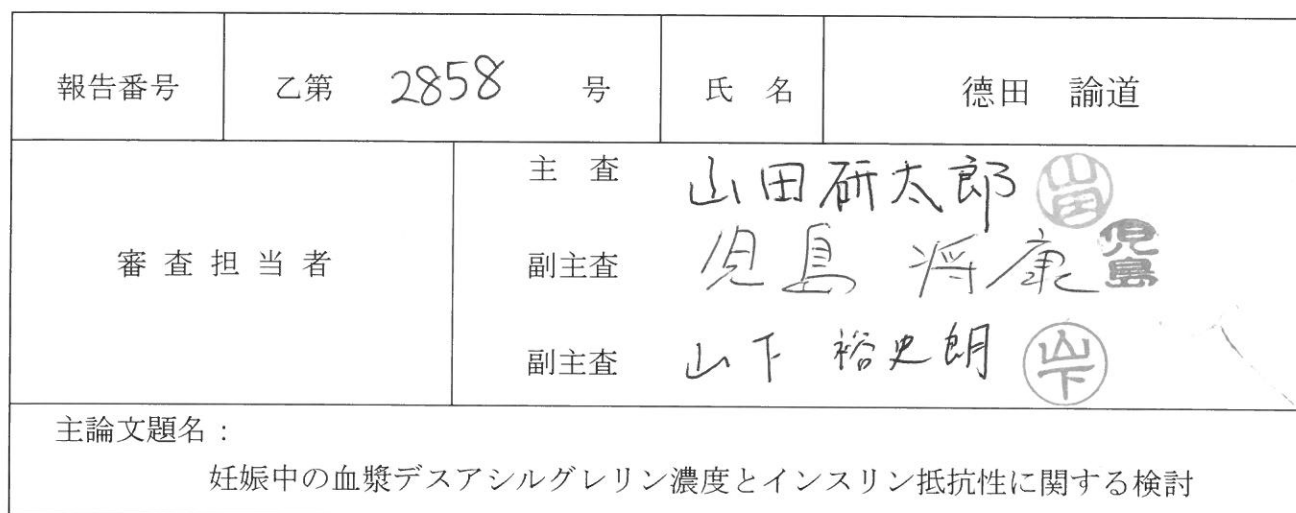 報告番号 乙第 2858 号 氏名 徳田 諭道
主査 山田研太郎 山田
審査担当者 副主査 児島 将康 児島
副主査 山下 裕史朗 山下
主論文題名:
妊娠中の血漿デスアシルグレリン濃度とインスリン抵抗性に関する検討